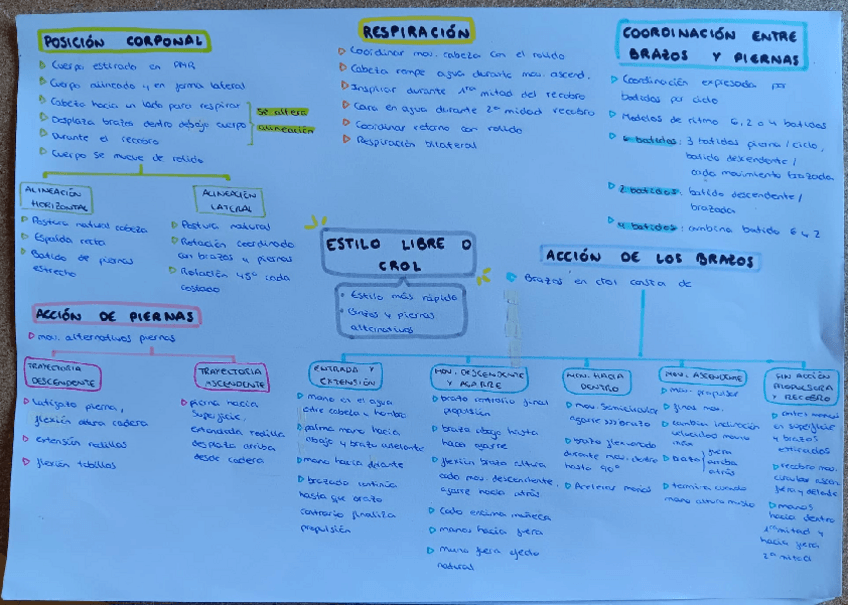 POSICIÓN CORPONAL
Cuerpo estirado en
Cuerpo alineado y en forma lateral
Cabeza hacia un lado para respirar
Desplaza brazos dentro debajo cuerpo
Durante el recobro
se altera
alineación
Cuerpo se mueve de rolido
ALINEACIÓN
HORIZONTAL
Postura natural cabeza
Espalda recta
Batido de piernas
estrecho
ALINEACIÓN
LATERAL
Postura natural
Rotación coordinada
con brazos y piernas
Rotación 45º cada
costado
RESPIRACIÓN
Coordinar mov. cabeza con el rolido
Cabeza rompe agua durante mov. ascend.
Inspirar durante 1ra mitad del recobro
Cara en agua durante 2a midad recobro
Coordinar retorno con rolido
Respiración bilateral
COORDINACIÓN ENTRE
BRAZOS Y PIERNAS
Coordinación expresada por
batidos por ciclo
Modelos de ritmo 6, 2 o 4 batidos
6 batidos: 3 batidos pierna / ciclo,
batido descendente /
cada movimiento brazada
2 batidos: batido descendente /
brazada
4 batidos: combina batido 6 y 2
ESTILO LIBRE O
CROL
Estilo más rápido
Brazos y piernas
alternativos
ACCIÓN DE PIERNAS
mov. alternativos piernas
TRAYECTORIA
DESCENDENTE
Latigazo pierna,
flexión cadera
extensión rodillas
flexión tobillos
TRAYECTORIA
ASCENDENTE
pierna hacia
superficie,
extendida rodilla
desplaza arriba
desde cadera
ACCIÓN DE LOS BRAZOS
Brazos en crol consta de
ENTRADA Y
EXTENSIÓN
mano en el agua
entre cabeza y hombro
palma mano hacia
abajo y brazo adelante
mano hacia delante
brazada continúa
hasta que brazo
contrario finaliza
propulsión
MOV. DESCENDENTE
Y AGARRE
brazo contrario final
propulsión
brazo abajo hasta
hacer agarre
flexión brazo altura
codo mov. descendente,
agarre hacia atrás
Codo encima muñeca
manos hacia fuera
mano fuera efecto
natural
MOV. HACIA
DENTRO
mov. semicircular
agarre brazo
brazo flexionado
durante mov. dentro
hasta 90º
Acelerar manos
MOV. ASCENDENTE
mov. propulsor
final mov.
cambian inclinación
velocidad mano
brazo
fuera
arriba
atrás
termina cuando
mano altura muslo
FIN ACCIÓN
PROPULSORA
Y RECOBRO
antes
en superficie
y brazos
estirados
recobro mov.
circular
fuera y delante
manos
hacia dentro
1a mitad y
hacia fuera
2a mitad